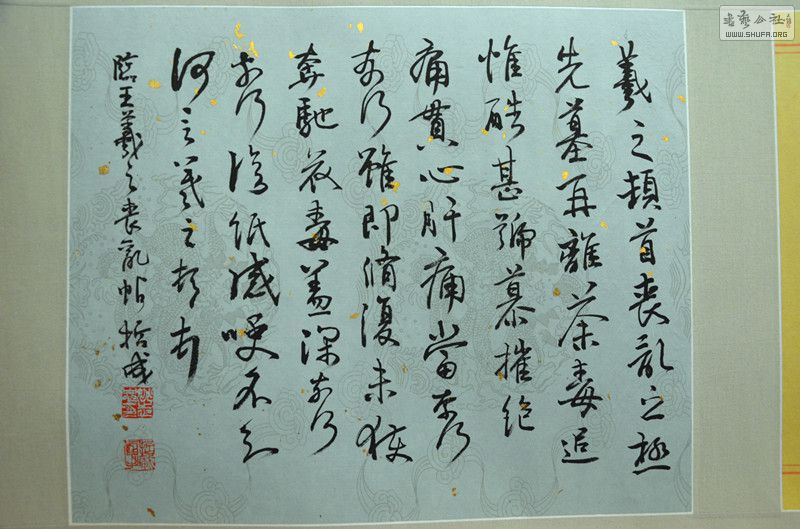 羲之頓首喪亂之極
先墓再離荼毒追
惟酷甚號慕摧絕
痛貫心肝痛當奈何
奈何雖即脩復未獲
奔馳哀毒益深奈何
奈何臨紙感哽不知
何言羲之頓首
臨王羲之喪亂帖
書藝公社
WWW.SHUFA.ORG